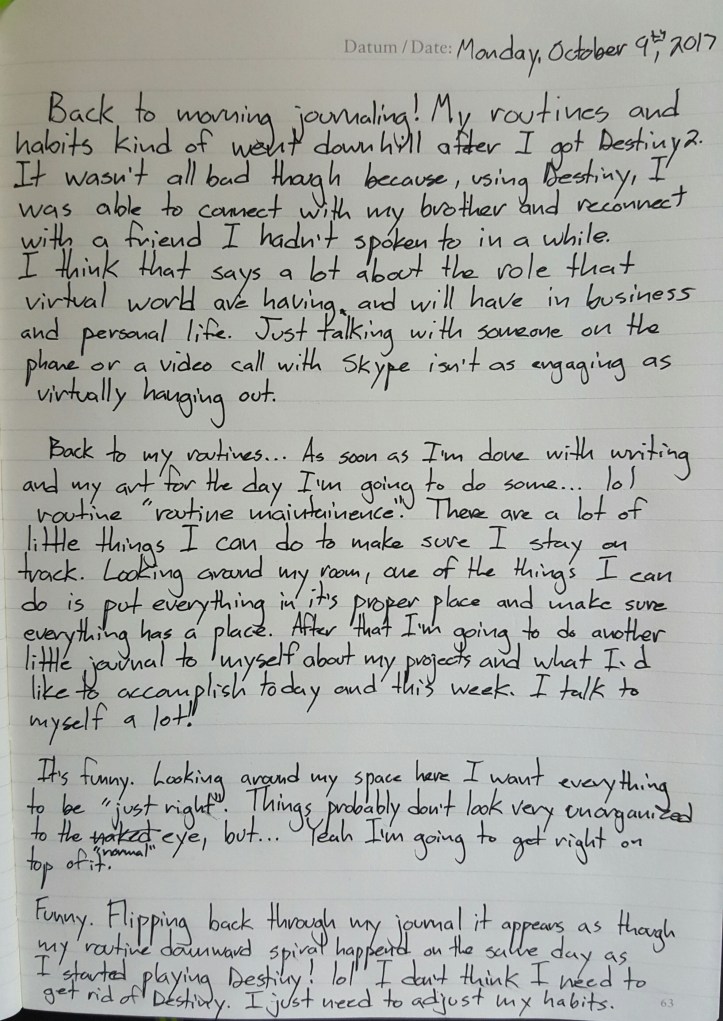 Datum / Date: Monday, October 9th, 2017
Back to morning journaling! My routines and
habits kind of went downhill after I got Destiny 2.
It wasn't all bad though because, using Destiny, I
was able to connect with my brother and reconnect
with a friend I hadn't spoken to in a while.
I think that says a lot about the role that
virtual world are having, and will have in business
and personal life. Just talking with someone on the
phone or a video call with Skype isn't as engaging as
virtually hanging out.
Back to my routines... As soon as I'm done with writing
and my art for the day I'm going to do some... lol
routine "routine maintainence". There are a lot of
little things I can do to make sure I stay on
track. Looking around my room, one of the things I can
do is put everything in it's proper place and make sure
everything has a place. After that I'm going to do another
little journal to myself about my projects and what I'd
like to accomplish today and this week. I talk to
myself a lot!
It's funny. Looking around my space here I want everything
to be "just right". Things probably don't look very unorganized
to the naked eye, but... Yeah I'm going to get right on
"normal"
top of it.
Funny. Flipping back through my journal it appears as though
my routine downward spiral happend on the same day as
I started playing Destiny! lol I don't think I need to
get rid of Destiny. I just need to adjust my habits.
63